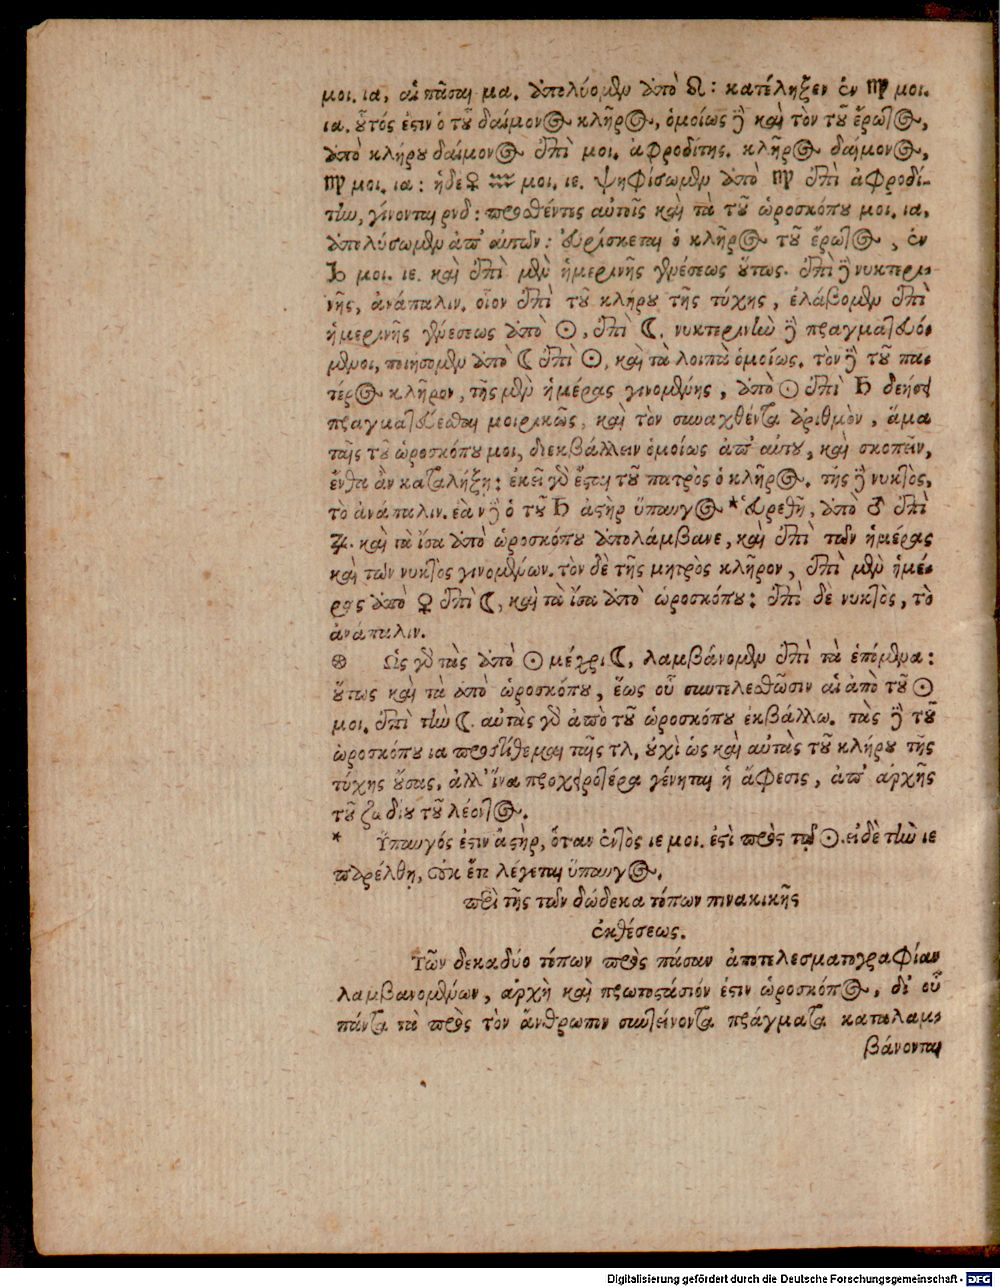 μοι. ια, αἱ πᾶσαι μα. ἀπολύομεν ἀπὸ ♌: κατέληξεν ἐν ♍ μοι.
ια. οὗτός ἐστιν ὁ τοῦ δαίμονος κλῆρος, ὁμοίως δὲ καὶ τὸν τοῦ ἔρωτος,
ἀπὸ κλήρου δαίμονος ἐπὶ μοι. ἀφροδίτης. κλῆρος δαίμονος,
♍ μοι. ια: ἡ δὲ ♀ ♒ μοι. ιε. ψηφίσωμεν ἀπὸ ♍ ἐπὶ ἀφροδί-
την, γίνονται ρνδ: προσθέντες αὐτοῖς καὶ τὰ τοῦ ὡροσκόπου μοι. ια,
ἀπολύσωμεν ἀπ' αὐτῶν: εὑρίσκεται ὁ κλῆρος τοῦ ἔρωτος, ἐν
μοι. ιε. καὶ ἐπὶ μὲν ἡμερινῆς γενέσεως οὕτως. ἐπὶ δὲ νυκτερι-
νῆς, ἀνάπαλιν. οἷον ἐπὶ τοῦ κλήρου τῆς τύχης, ἐλάβομεν ἐπὶ
ἡμερινῆς γενέσεως ἀπὸ ☉, ἐπὶ ☾. νυκτερινὴν δὲ πραγματευό-
μενοι, ποιήσομεν ἀπὸ ☾ ἐπὶ ☉, καὶ τὰ λοιπὰ ὁμοίως. τὸν δὲ τοῦ πα-
τέρος κλῆρον, τῆς μὲν ἡμέρας γινομένης, ἀπὸ ☉ ἐπὶ ♄ δεήσει
πραγματεύεσθαι μοιρικῶς, καὶ τὸν συναχθέντα ἀριθμὸν, ἅμα
ταῖς τοῦ ὡροσκόπου μοι, διεκβάλλειν ὁμοίως ἀπ' αὐτοῦ, καὶ σκοπεῖν,
ἔνθα ἂν καταλήξῃ: ἐκεῖ γὰρ ἔσται τοῦ πατρὸς ὁ κλῆρος. τῆς δὲ νυκτὸς,
τὸ ἀνάπαλιν. ἐὰν δὲ ὁ τοῦ ♄ ἀστὴρ ὕπαυγος * εὑρεθῇ, ἀπὸ ♂ ἐπὶ
♃. καὶ τὰ ἴσα ἀπὸ ὡροσκόπου ἀπολάμβανε, καὶ ἐπὶ τῶν ἡμέρας
καὶ τῶν νυκτὸς γινομένων. τὸν δὲ τῆς μητρὸς κλῆρον, ἐπὶ μὲν ἡμέ-
ρας ἀπὸ ♀ ἐπὶ ☾, καὶ τὰ ἴσα ἀπὸ ὡροσκόπου: ἐπὶ δὲ νυκτὸς, τὸ
ἀνάπαλιν.
⊛ Ὡς γὰρ τὰς ἀπὸ ☉ μέχρι ☾, λαμβάνομεν ἐπὶ τὰ ἑπόμενα:
οὕτως καὶ τὰ ἀπὸ ὡροσκόπου, ἕως οὗ συντελεσθῶσιν αἱ ἀπὸ τοῦ ☉
μοι. ἐπὶ τὴν ☾. αὐτὰς γὰρ ἀπὸ τοῦ ὡροσκόπου ἐκβάλλω. τὰς δὲ τοῦ
ὡροσκόπου ια προστίθεμαι ταῖς τλ, οὐχὶ ὡς καὶ αὐτὰς τοῦ κλήρου τῆς
τύχης οὔσας, ἀλλ' ἵνα προχειροτέρα γένηται ἡ ἄφεσις, ἀπ' ἀρχῆς
τοῦ ζῳδίου τοῦ λέοντος.
* Ὕπαυγός ἐστιν ἀστὴρ, ὅταν ἐντὸς ιε μοι. ἐστὶ πρὸς τὸν ☉. εἰ δὲ τὴν ιε
παρέλθῃ, οὐκ ἔτι λέγεται ὕπαυγος.
περὶ τῆς τῶν δώδεκα τόπων πινακικῆς
ἐκθέσεως.
Τῶν δεκαδύο τόπων πρὸς πᾶσαν ἀποτελεσματογραφίαν
λαμβανομένων, ἀρχὴ καὶ πρωτοστάσιόν ἐστιν ὡροσκόπος, δι' οὗ
πάντα τὰ πρὸς τὸν ἄνθρωπον συντείνοντα πράγματα καταλαμ-
βάνονται
Digitalisierung gefördert durch die Deutsche Forschungsgemeinschaft - DFG